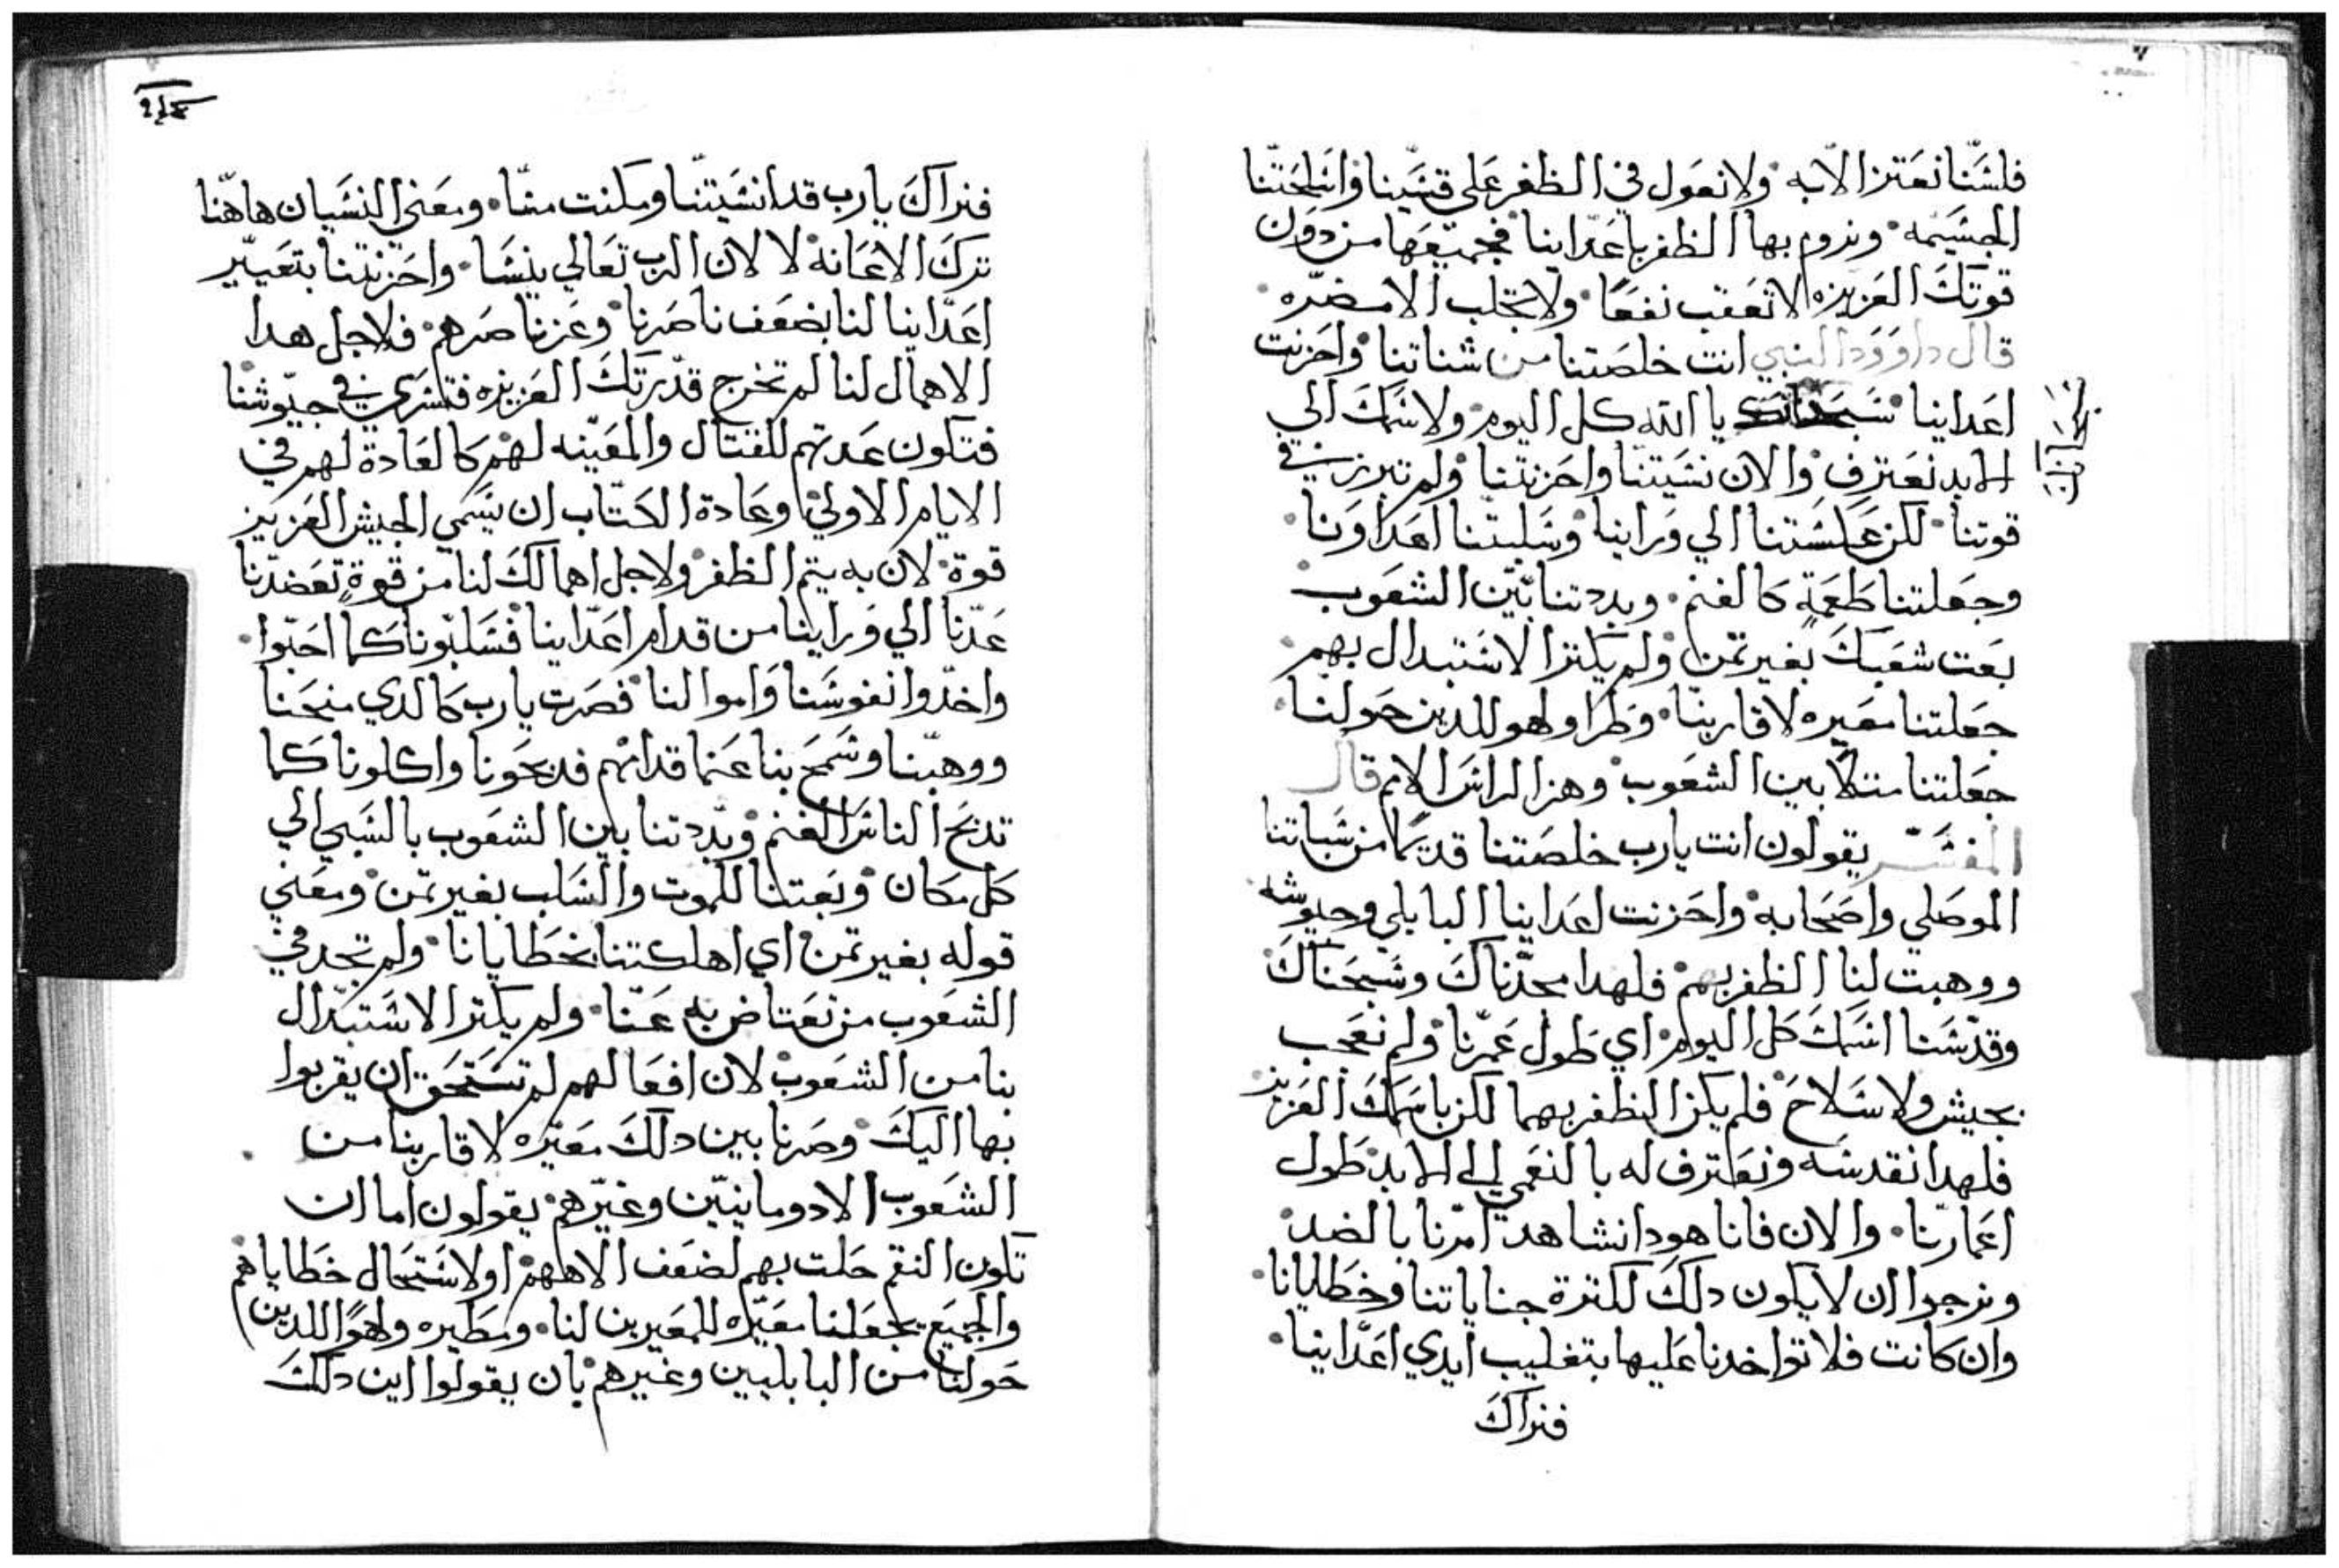 فلسنا نعتز الا به ولا نعول في الظفر على قسينا واسلحتنا
الجسيمه ونروم بها الظفر باعداينا فجميعها من دون
قوتك العزيزه لا تعقب نفعا ولا تجلب الا مضره
قال داوود النبي انت خلصتنا من شناتنا واحزنت
اعداينا سبحناك يا الله كل اليوم ولاسمك الي
الابد نعترف والان نسيتنا واحزنتنا ولم تبرز في
قوتنا لكن عكستنا الي وراينا وسلبتنا اعداونا
وجعلتنا طعمة كالغنم وبددتنا بين الشعوب
بعت شعبك بغير تمن ولم يكتر الاستبدال بهم
جعلتنا معيره لاقاربنا وطرا ولهو للدين حولنا
جعلتنا متلا بين الشعوب وهز الراس الامم قال
المفسر يقولون انت يارب خلصتنا قديما من شناتنا
الموصلي واصحابه واحزنت اعداينا البابلي وجيوشه
ووهبت لنا الظفر بهم فلهدا مجدناك وسبحناك
وقدسنا اسمك كل اليوم اي طول عمرنا ولم نعجب
بجيش ولا سلاح فلم يكن الظفر بهما لكن باسمك العزيز
فلهدا نقدسه ونعترف له بالنعمي الي الابد طول
اعمارنا والان فانا هودا نشاهد امرنا بالضد
ونرجوا ان لا يكون دلك لكترة جناياتنا وخطايانا
وان كانت فلا تواخدنا عليها بتغليب ايدي اعداينا
فنراك
فنراك يارب قد انسيتنا ومكنت منا ومعني النسيان هاهنا
ترك الاعانه لا لان الرب تعالي ينسا واحزنتنا بتعيير
اعداينا لنا بضعف ناصرنا وعز ناصرهم فلاجل هدا
الاهمال لنا لم تخرج قدرتك العزيزه فتسري في جيوشنا
فتكون عدتهم للقتال والمعينه لهم كالعادة لهم في
الايام الاولي وعادة الكتاب ان يسمي الجيش العزيز
قوة لان به يتم الظفر ولاجل اهمالك لنا من قوة تعضدنا
عدنا الي وراينا من قدام اعداينا فسلبونا كما احبوا
واخدوا نفوسنا واموالنا فصرت يارب كالدي منحنا
ووهبنا وسمح بنا غنما قدامهم فدبحونا واكلونا كما
تدبح الناس الغنم وبددتنا بين الشعوب بالسبي الي
كل مكان وبعتنا للموت والسلب بغير تمن ومعني
قوله بغير تمن اي اهلكتنا بخطايانا ولم تجد في
الشعوب من تعتاض به عنا ولم يكتر الاستبدال
بنا من الشعوب لان افعالهم لم تستحق ان يقربوا
بها اليك وصرنا بين دلك معيره لاقاربنا من
الشعوب الادومانيين وغيرهم يقولون اما ان
تكون النقم حلت بهم لضعف الاههم او لاستحال خطاياهم
والجميع يجعلنا معيره للمعيرين لنا ومطيره ولهوا للدين
حولنا من البابليين وغيرهم بان يقولوا اين دلك